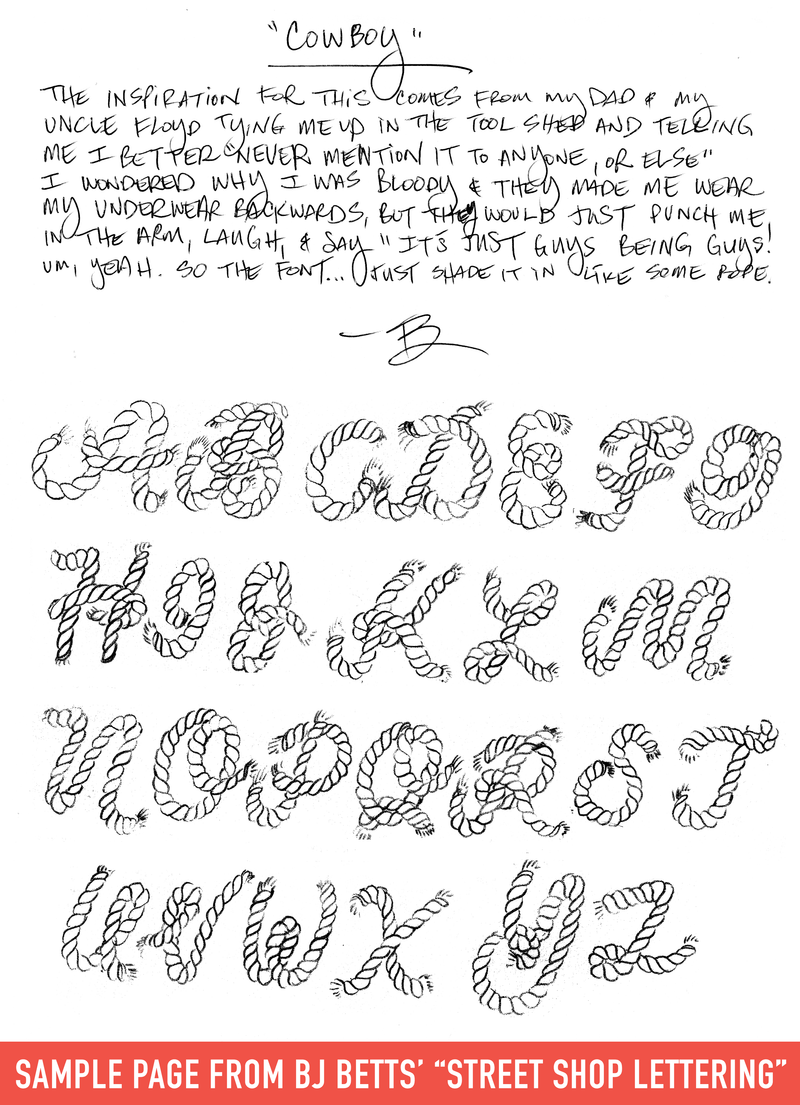 "COWBOY"
THE INSPIRATION FOR THIS COMES FROM MY DAD & MY
UNCLE FLOYD TYING ME UP IN THE TOOL SHED AND TELLING
ME I BETTER "NEVER MENTION IT TO ANYONE, OR ELSE"
I WONDERED WHY I WAS BLOODY & THEY MADE ME WEAR
MY UNDERWEAR BACKWARDS, BUT THEY WOULD JUST PUNCH ME,
IN THE ARM, LAUGH, & SAY "IT'S JUST GUYS BEING GUYS!
UM, YEAH. SO THE FONT... JUST SHADE IT IN LIKE SOME ROPE.
—B
A B C D E F G
H I J K L M
N O P Q R S T
U V W X Y Z
SAMPLE PAGE FROM BJ BETTS' "STREET SHOP LETTERING"